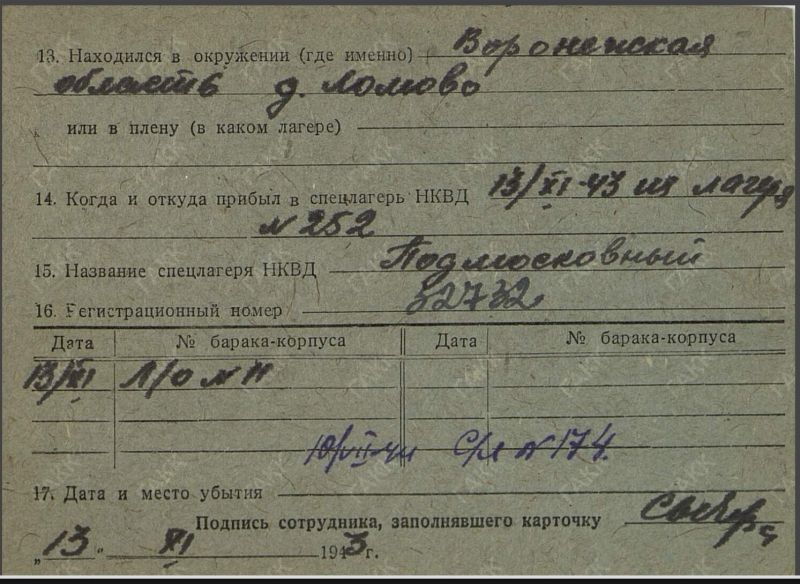 13. Находился в окружении (где именно) Воронежская
область д. Ломово
или в плену (в каком лагере)
14. Когда и откуда прибыл в спецлагерь НКВД 13/XI-43 из лагеря
N 252
15. Название спецлагеря НКВД Подмосковный
16. Регистрационный номер 32732
Дата № барака-корпуса Дата № барака-корпуса
13/XI Л/о N 11
10/VII-44 С/л N 174.
17. Дата и место убытия
Подпись сотрудника, заполнявшего карточку
„13" XI 1943 г.